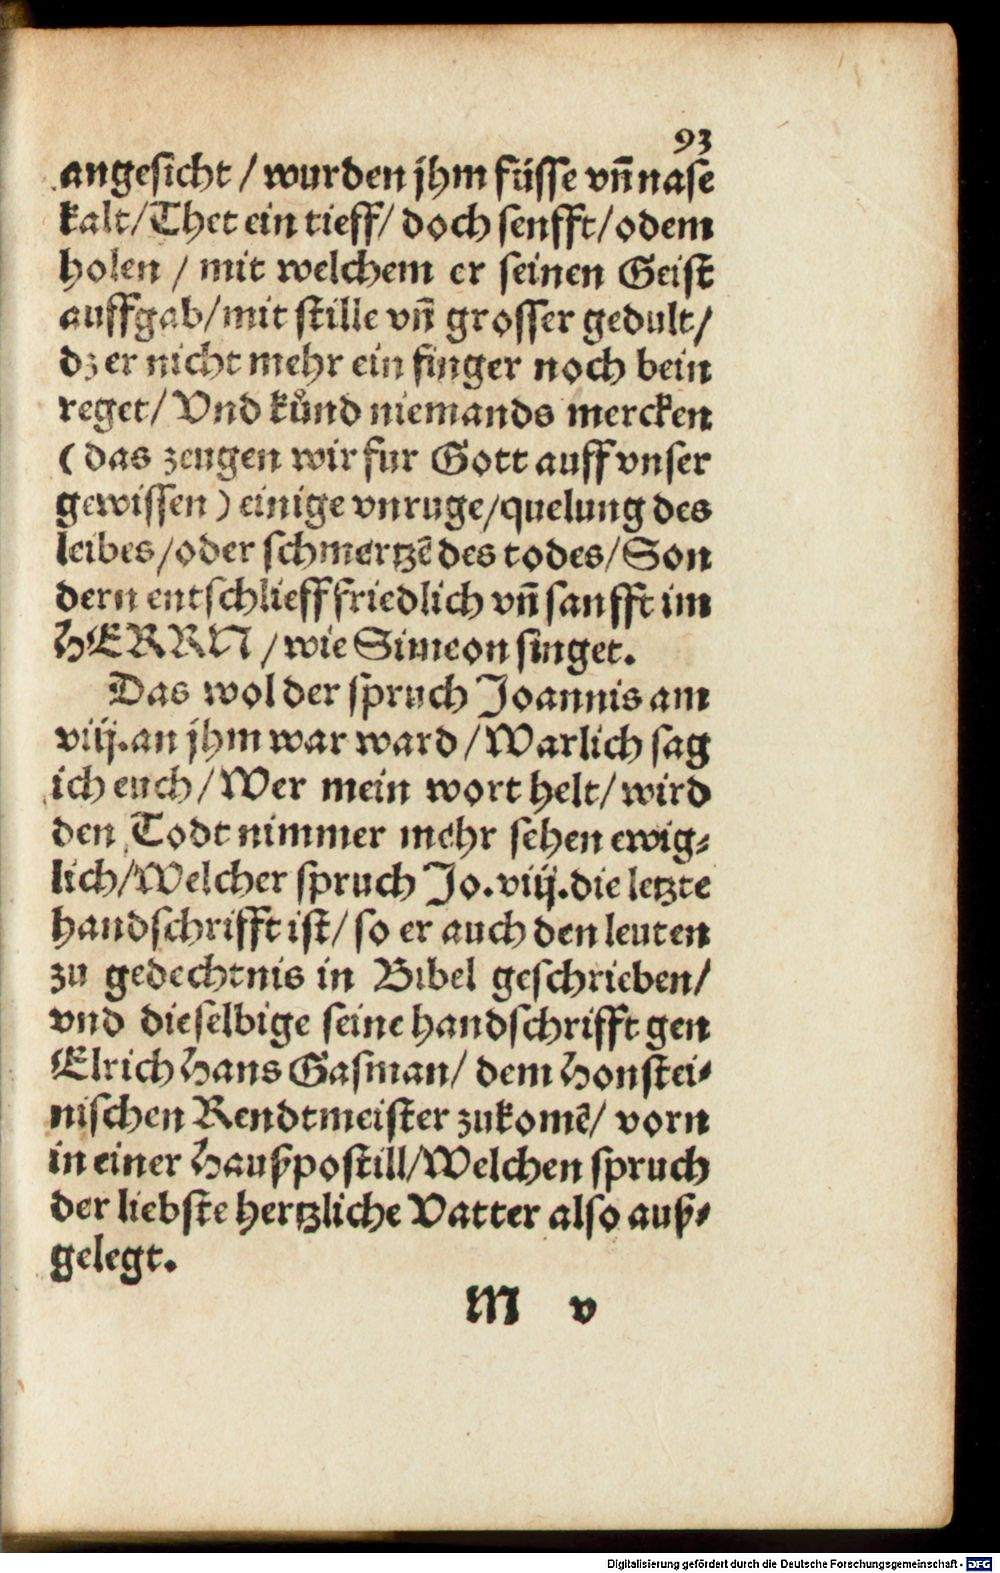 93
angesicht / wurden jhm füsse vñ nase
kalt / Thet ein tieff / doch senfft / odem
holen / mit welchem er seinen Geist
auffgab / mit stille vñ grosser gedult /
dz er nicht mehr ein finger noch bein
reget / Vnd kůnd niemands mercken
( das zeugen wir fur Gott auff vnser
gewissen ) einige vnruge / quelung des
leibes / oder schmertzẽ des todes / Son
dern entschlieff friedlich vñ sanfft im
HERRN / wie Simeon singet.
Das wol der spruch Joannis am
viij. an jhm war ward / Warlich sag
ich euch / Wer mein wort helt / wird
den Todt nimmer mehr sehen ewig⸗
lich / Welcher spruch Jo. viij. die letzte
handschrifft ist / so er auch den leuten
zu gedechtnis in Bibel geschrieben /
vnd dieselbige seine handschrifft gen
Elrich Hans Gasman / dem Honstei⸗
nischen Rendtmeister zukomẽ / vorn
in einer Haußpostill / Welchen spruch
der liebste hertzliche Vatter also auß⸗
gelegt.
M v
Digitalisierung gefördert durch die Deutsche Forschungsgemeinschaft - DFG